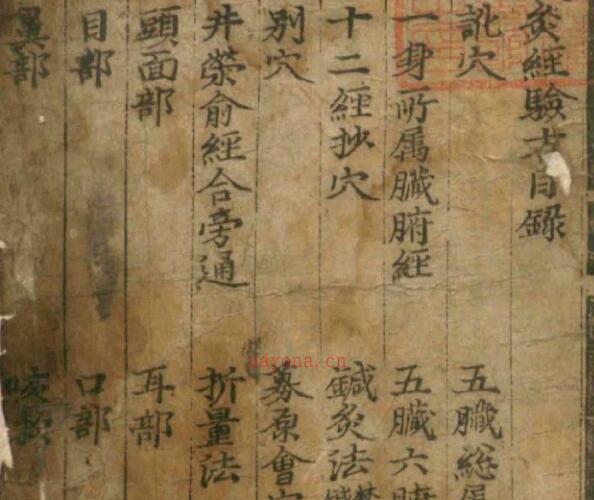 灸經驗方目錄
訛穴
五臟総屬
一身所属臟腑經
五臟六腑
十二經抄穴
鍼灸法
別穴
募原會穴
井榮俞經合旁通
折量法
頭面部
耳部
目部
口部
鼻部
咳
nayona.cn